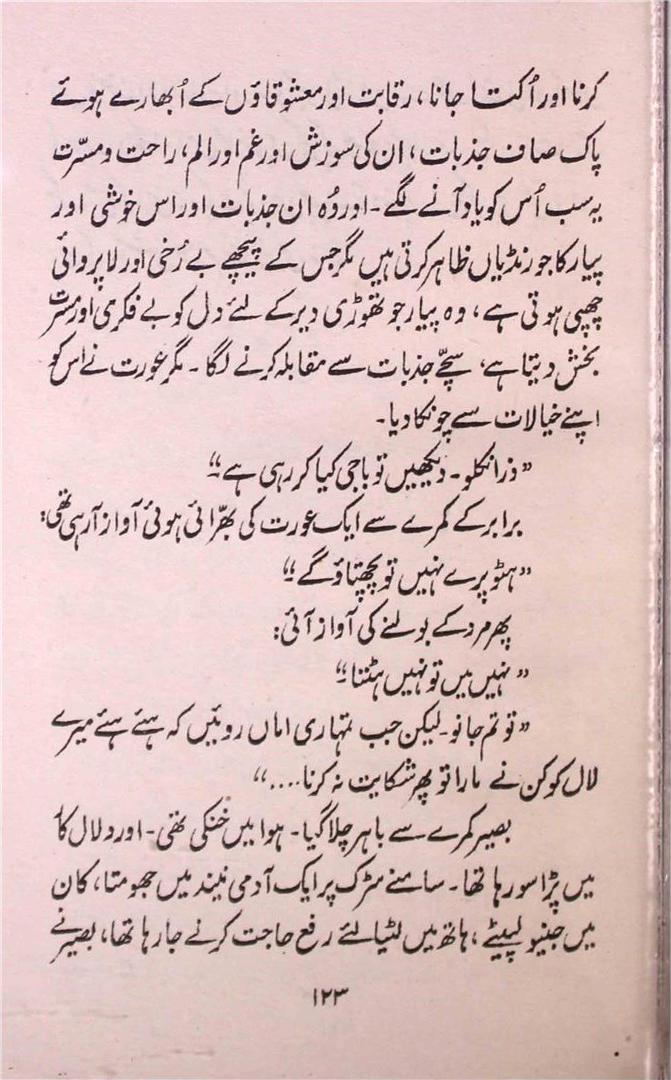 کرنا اور اُکتا جانا، رقابت اور معشوقاؤں کے اُبھارے ہوئے
پاک صاف جذبات، ان کی سوزش اور غم اور الم، راحت و مسرّت
یہ سب اُس کو یاد آنے لگے۔ اور وُہ ان جذبات اور اس خوشی اور
پیار کا جو رنڈیاں ظاہر کرتی ہیں مگر جس کے پیچھے بے رُخی اور لاپروائی
چھپی ہوتی ہے، وہ پیار جو تھوڑی دیر کے لئے دل کو بے فکری اور مسرت
بخش دیتا ہے، سچّے جذبات سے مقابلہ کرنے لگا۔ مگر عورت نے اس کو
اپنے خیالات سے چونکا دیا۔
”ذرا نکلو۔ دیکھیں تو باجی کیا کر رہی ہے۔“
برابر کے کمرے سے ایک عورت کی بھرّائی ہوئی آواز آرہی تھی:
”ہٹو پرے نہیں تو پچھتاؤ گے۔“
پھر مرد کے بولنے کی آواز آئی:
”نہیں میں تو نہیں ہٹتا۔“
”تو تم جانو۔ لیکن جب تمہاری اماں روئیں کہ ہئے ہئے میرے
لال کو کن نے مارا تو پھر شکایت نہ کرنا....“
بصیر کمرے سے باہر چلا گیا۔ ہوا میں خنکی تھی۔ اور دلال کا
میں پڑا سو رہا تھا۔ سامنے سڑک پر ایک آدمی نیند میں جھومتا، کان
میں جنیو لپیٹے، ہاتھ میں لٹیا لئے رفع حاجت کرنے جا رہا تھا، بصیر نے
۱۲۳